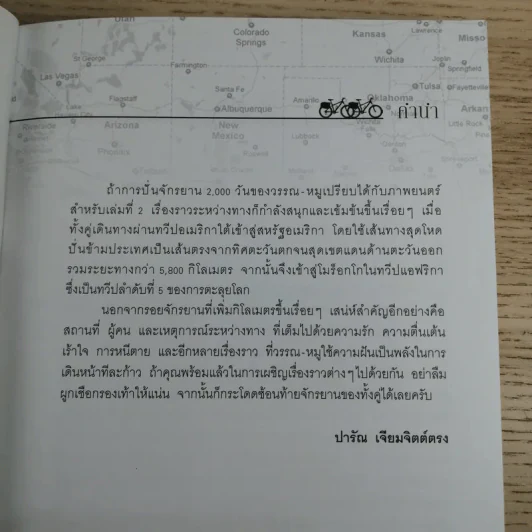 Utah
Colorado
Springs
Kansas
Lawrence
Misso
St George
Wichita
Joplin
Springfield
Las Vegas
Farmington
Tulsa
Fayetteville
Santa Fe
Flagstaff
Albuquerque
Amarillo
Oklahoma
Arkan
คำนำ
Riverside
Arizona
New
Mexico
Little Rock
Phoenix
Lubbock
ถ้าการปั่นจักรยาน 2,000 วันของวรรณ-หมูเปรียบได้กับภาพยนตร์
สำหรับเล่มที่ 2 เรื่องราวระหว่างทางก็กำลังสนุกและเข้มข้นขึ้นเรื่อยๆ เมื่อ
ทั้งคู่เดินทางผ่านทวีปอเมริกาใต้เข้าสู่สหรัฐอเมริกา โดยใช้เส้นทางสุดโหด
ปั่นข้ามประเทศเป็นเส้นตรงจากทิศตะวันตกจนสุดเขตแดนด้านตะวันออก
รวมระยะทางกว่า 5,800 กิโลเมตร จากนั้นจึงเข้าสู่โมร็อกโกในทวีปแอฟริกา
ซึ่งเป็นทวีปลำดับที่ 5 ของการตะลุยโลก
นอกจากรอยจักรยานที่เพิ่มกิโลเมตรขึ้นเรื่อยๆ เสน่ห์สำคัญอีกอย่างคือ
สถานที่ ผู้คน และเหตุการณ์ระหว่างทาง ที่เต็มไปด้วยความรัก ความตื่นเต้น
เร้าใจ การหนีตาย และอีกหลายเรื่องราว ที่วรรณ-หมูใช้ความฝันเป็นพลังในการ
เดินหน้าทีละก้าว ถ้าคุณพร้อมแล้วในการเผชิญเรื่องราวต่างๆไปด้วยกัน อย่าลืม
ผูกเชือกรองเท้าให้แน่น จากนั้นก็กระโดดซ้อนท้ายจักรยานของทั้งคู่ได้เลยครับ
ปารัณ เจียมจิตต์ตรง